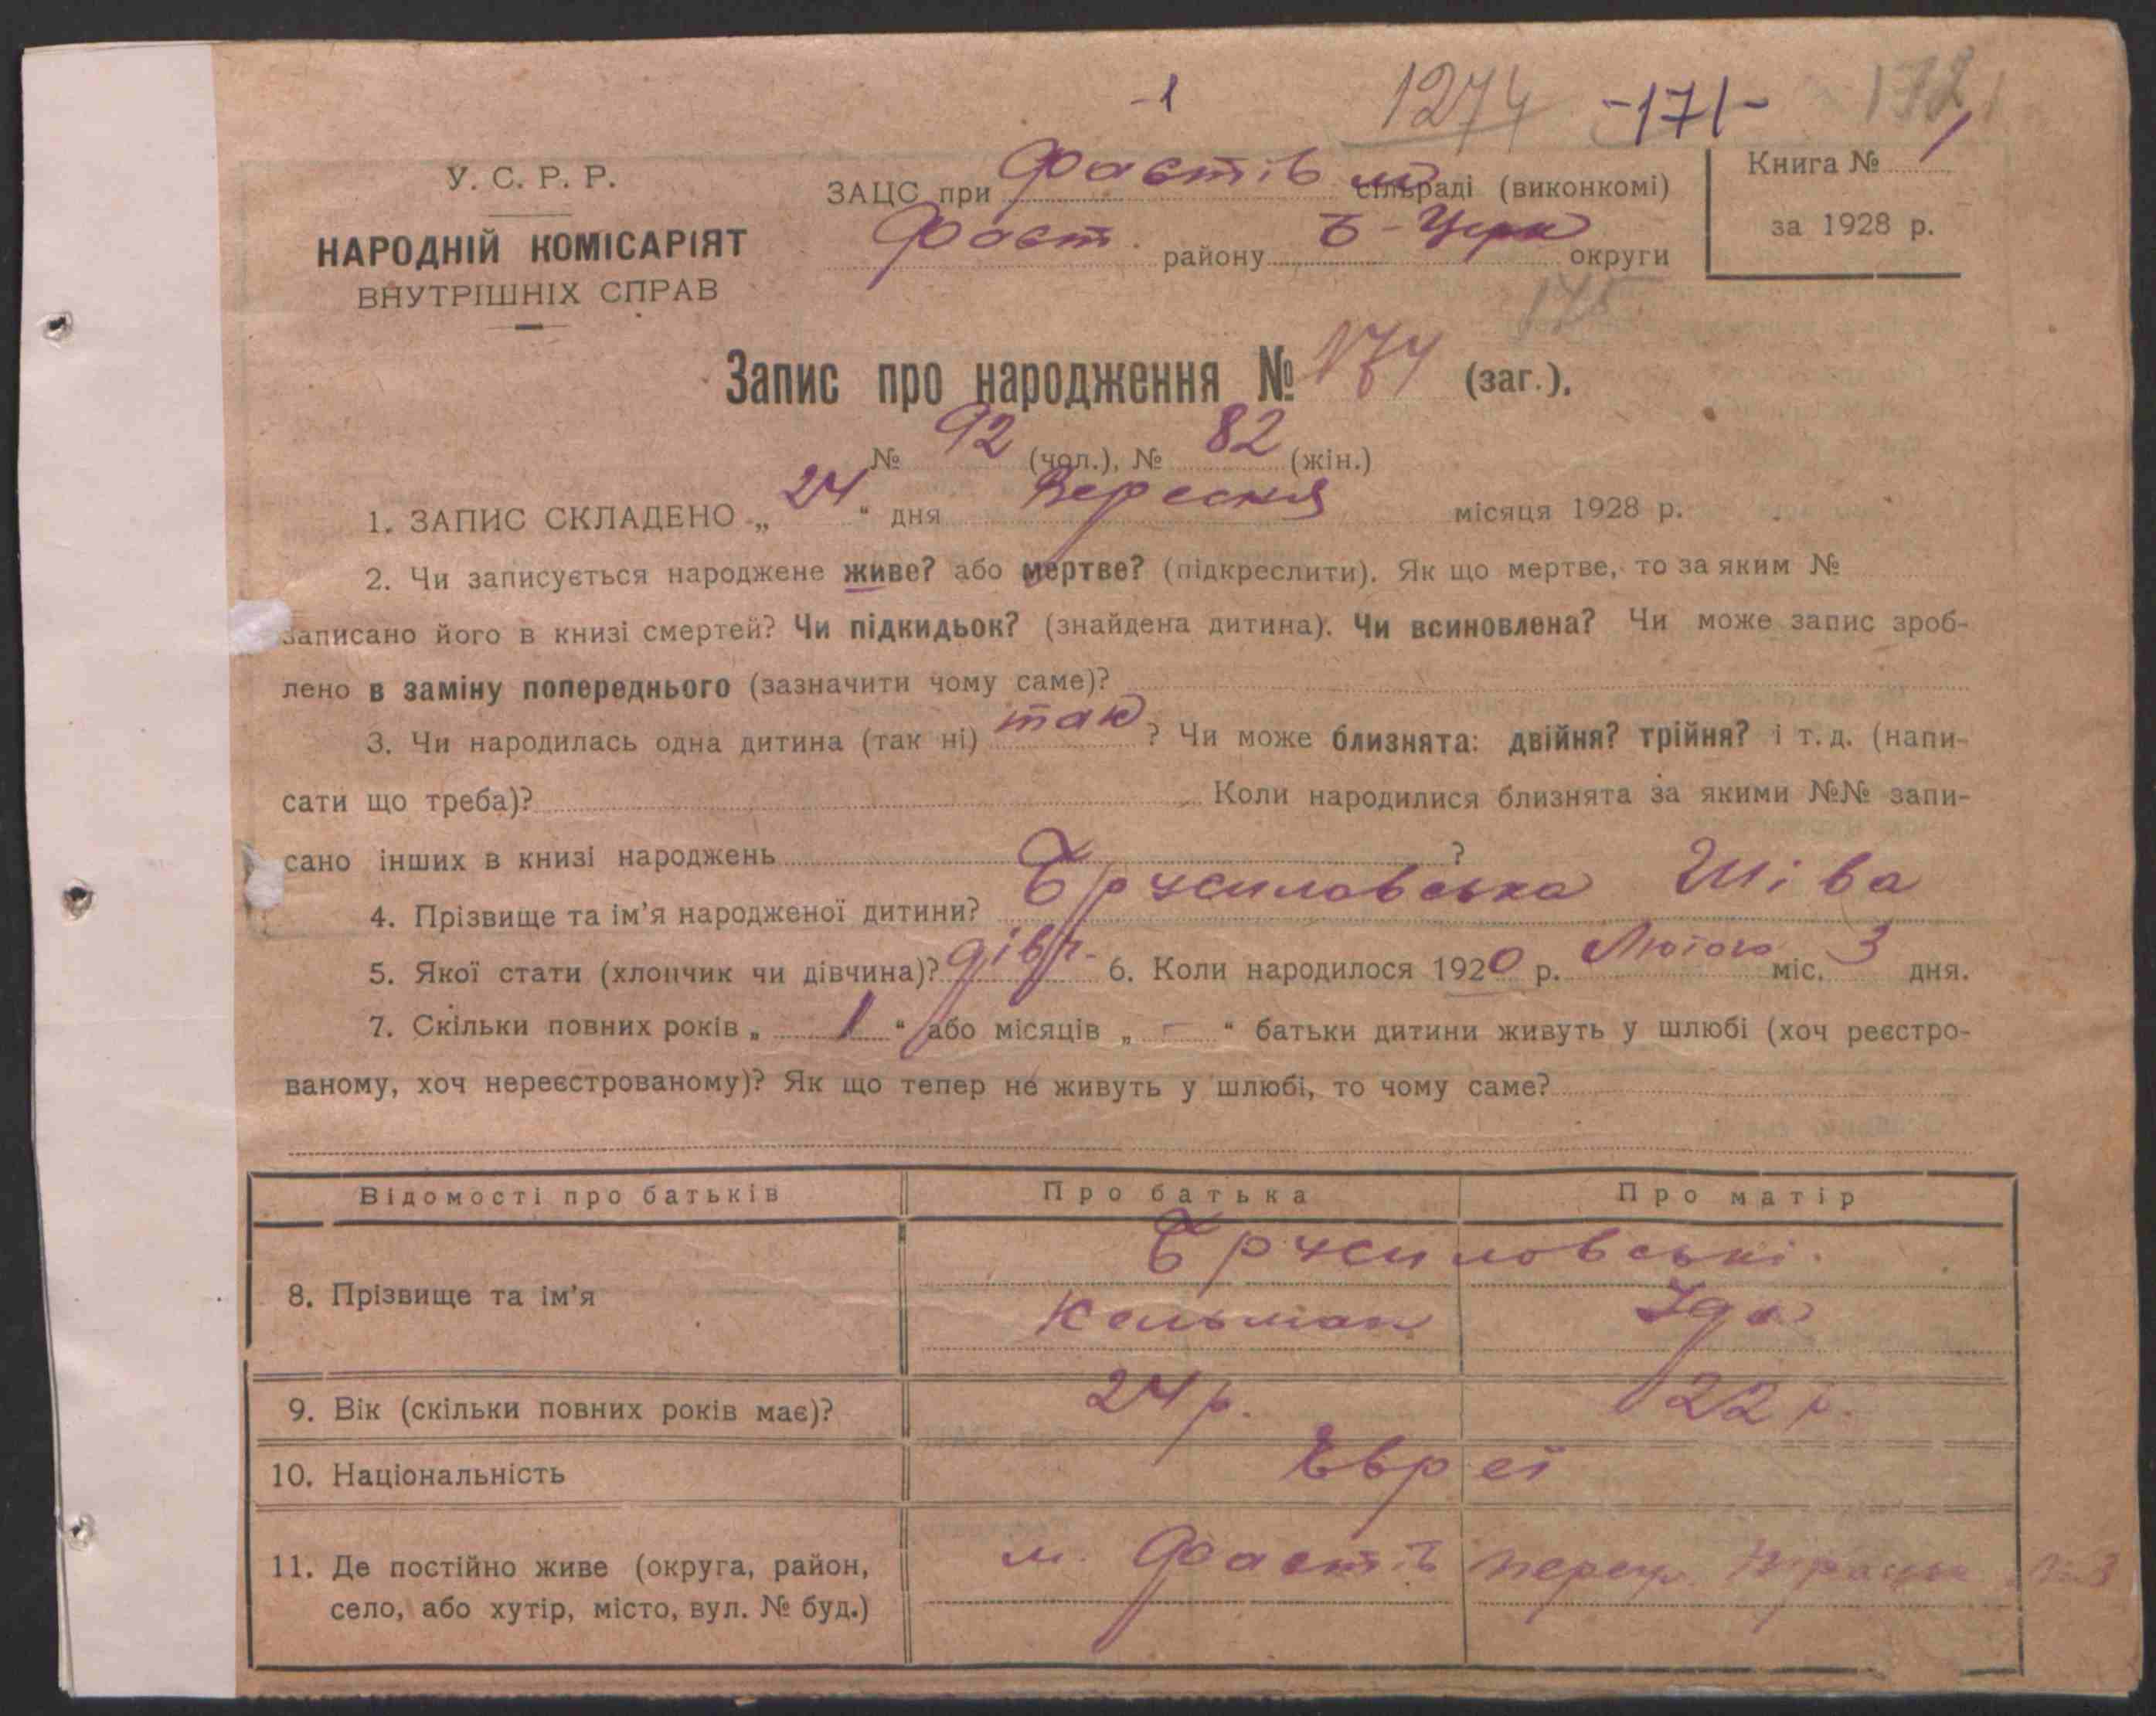 -1 1274 -171- 172
У. С. Р. Р.
НАРОДНІЙ КОМІСАРІЯТ
ВНУТРІШНІХ СПРАВ
ЗАЦС при Фастів м сільраді (виконкомі)
Фаст. району Б-Церк округи
Книга № 1
за 1928 р.
175
Запис про народження № 174 (заг.).
№ 92 (чол.), № 82 (жін.)
1. ЗАПИС СКЛАДЕНО „24“ дня Вересня місяця 1928 р.
2. Чи записується народжене живе? або мертве? (підкреслити). Як що мертве, то за яким №
записано його в книзі смертей? Чи підкидьок? (знайдена дитина). Чи всиновлена? Чи може запис зроб-
лено в заміну попереднього (зазначити чому саме)?
3. Чи народилась одна дитина (так ні) так ? Чи може близнята: двійня? трійня? і т. д. (напи-
сати що треба)? Коли народилися близнята за якими №№ запи-
сано інших в книзі народжень ?
4. Прізвище та ім’я народженої дитини? Брусиловська Шіва
5. Якої стати (хлопчик чи дівчина)? дівч. 6. Коли народилося 1920 р. Лютого міс. 3 дня.
7. Скільки повних років „ 1 “ або місяців „ - “ батьки дитини живуть у шлюбі (хоч реєстро-
ваному, хоч нереєстрованому)? Як що тепер не живуть у шлюбі, то чому саме?
Відомості про батьків Про батька Про матір
8. Прізвище та ім’я Брусиловські.
Кельман Іда
9. Вік (скільки повних років має)? 24 р. 22 р.
10. Національність Євреї
11. Де постійно живе (округа, район, м. Фастів №3
село, або хутір, місто, вул. № буд.)